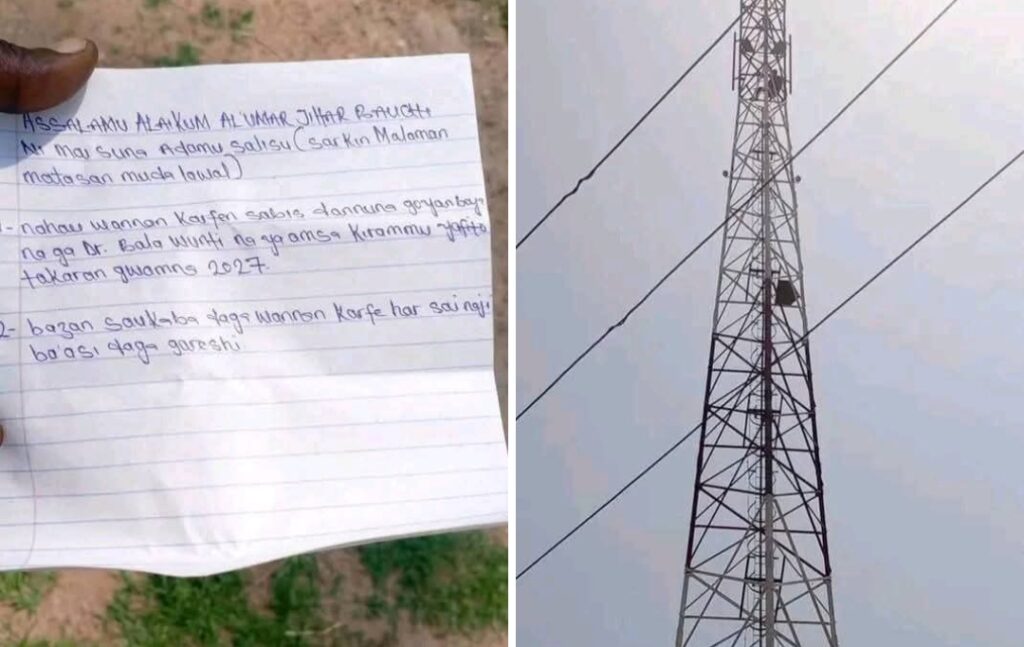 ASSALAMU ALAIKUM AL'UMAR JIHAR BAUCHI
Ni mai suna Adamu Salisu (sarkin Malaman
matasan muda lawal)
1- nahau wannan Karfen sabis dannuna goyan baya
na ga Dr. Bala Wunti na ya amsa Kirammu yafito
takaran gwamna 2027.
2- bazan sauka ba daga wannan Karfe har sai naji
ba'asi daga gareshi